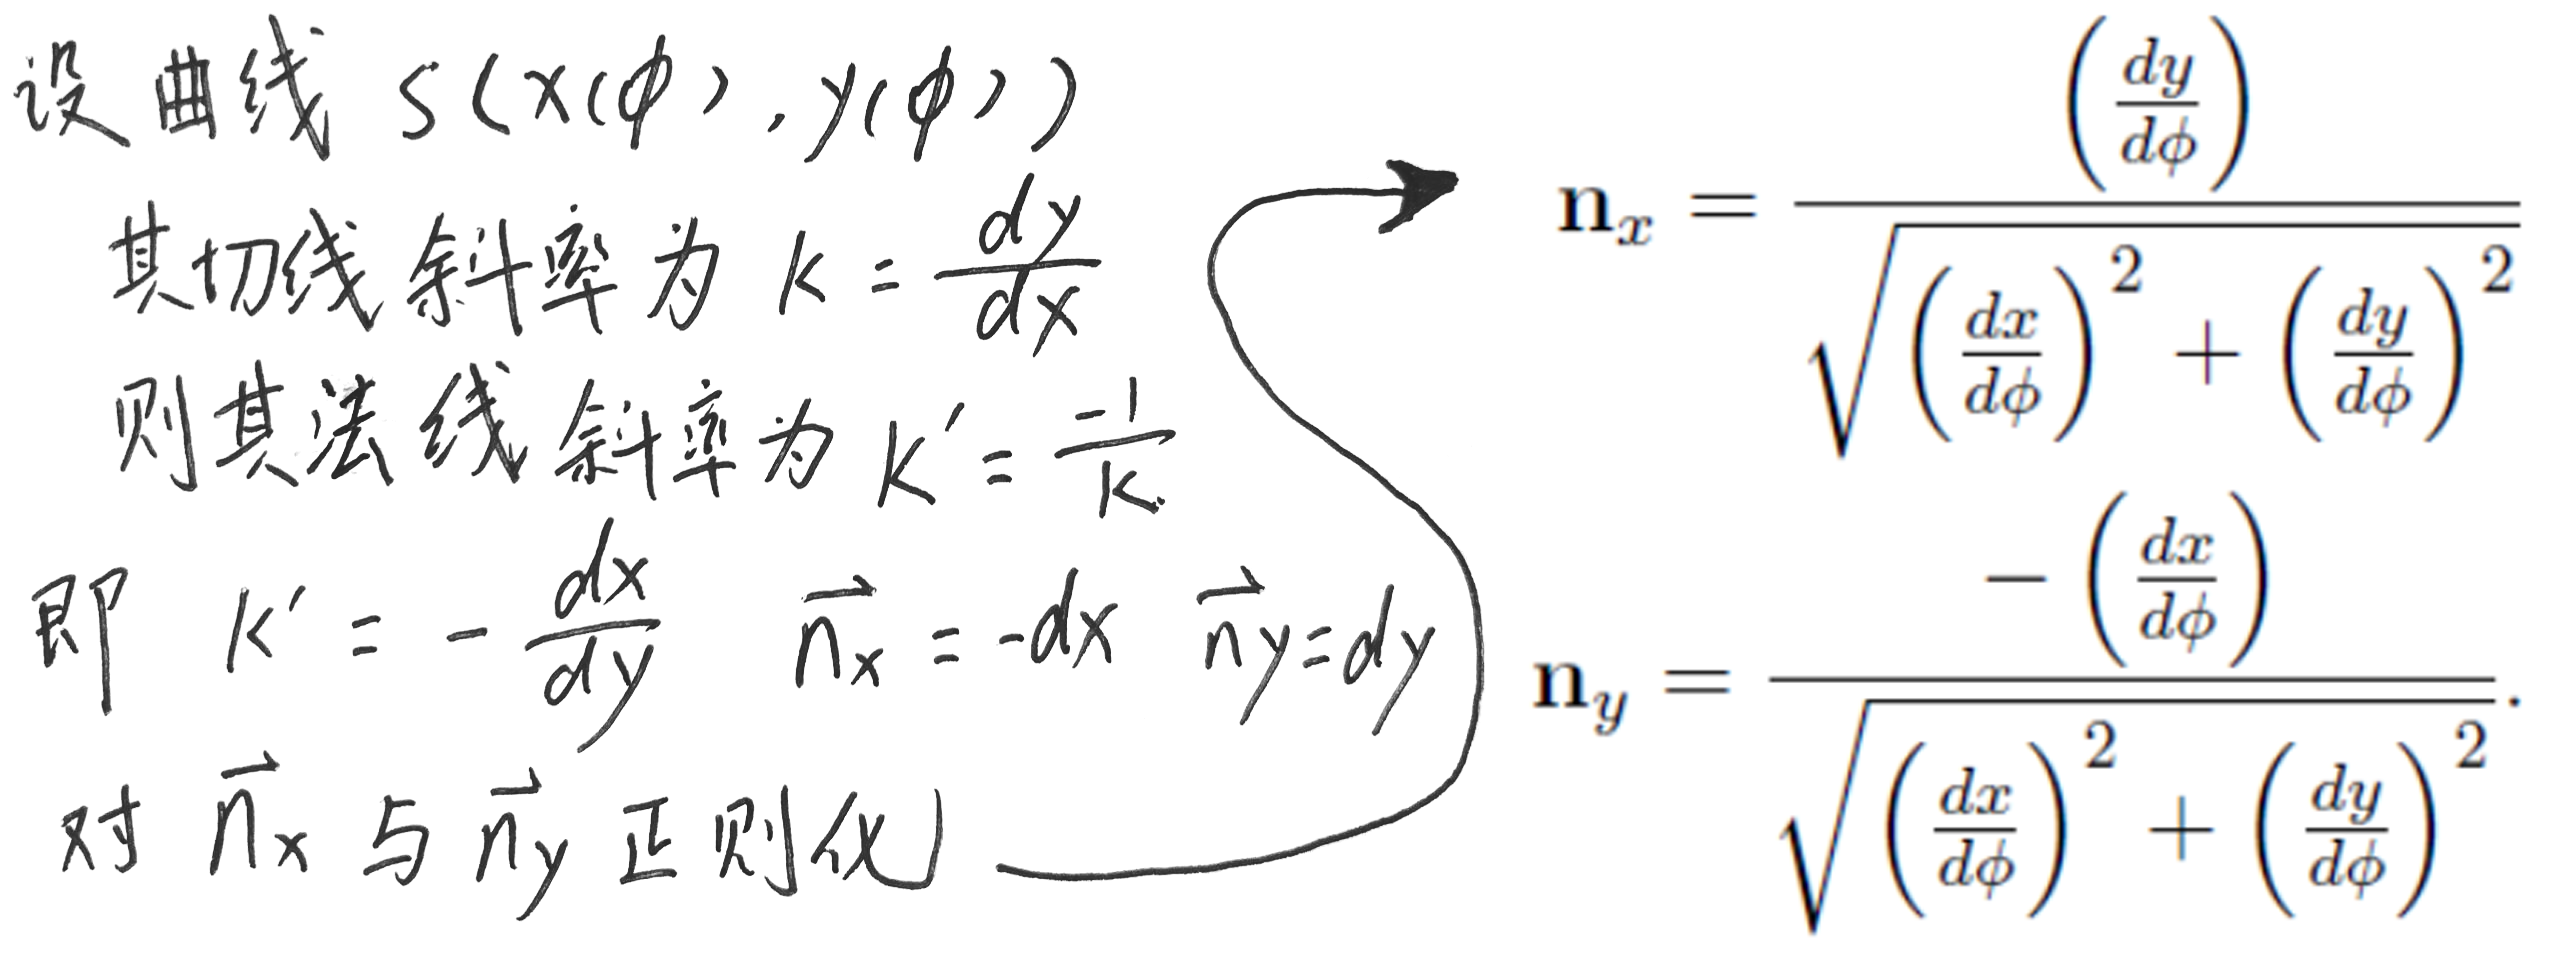 设曲线 S(x(ϕ),y(ϕ))
其切线斜率为 k = dy/dx
则其法线斜率为 k' = -1/k
即 k' = - dx/dy n⃗x = -dx n⃗y = dy
对 n⃗x 与 n⃗y 正则化
nₓ = (dy/dϕ) / √((dx/dϕ)² + (dy/dϕ)²)
n_y = -(dx/dϕ) / √((dx/dϕ)² + (dy/dϕ)²).